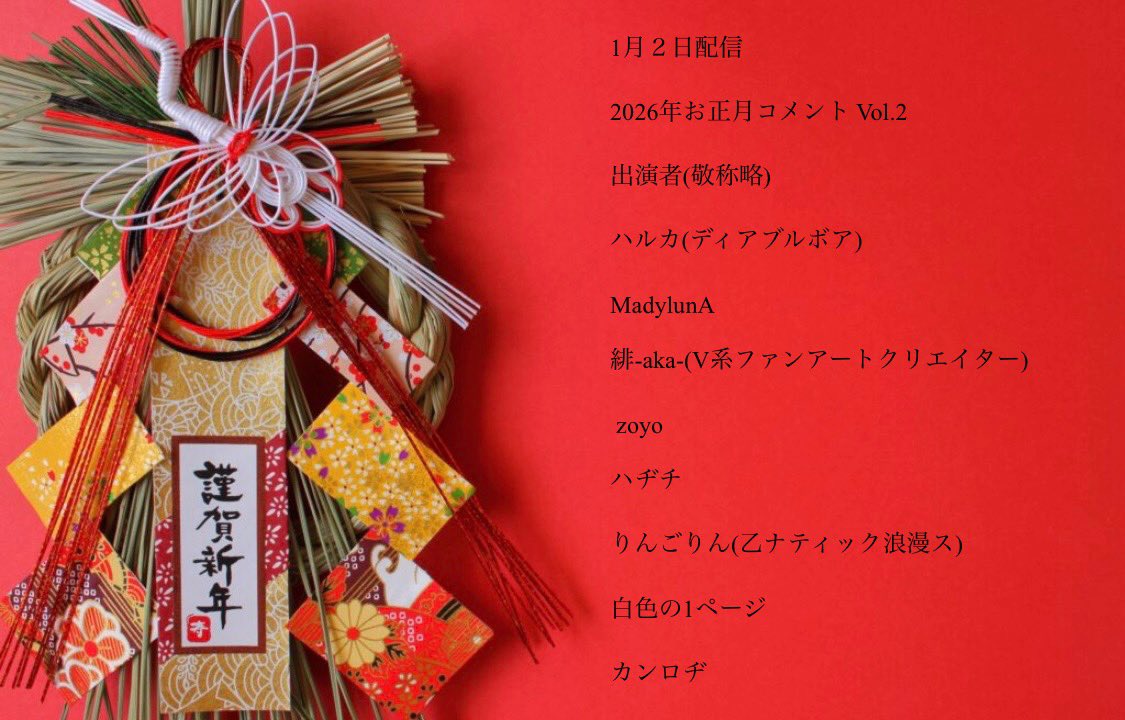 1月２日配信
2026年お正月コメント Vol.2
出演者(敬称略)
ハルカ(ディアブルボア)
MadylunA
緋-aka-(V系ファンアートクリエイター)
zoyo
ハヂチ
りんごりん(乙ナティック浪漫ス)
白色の1ページ
カンロヂ
謹賀新年
寿